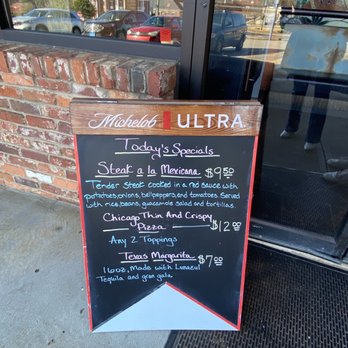 Michelob ULTRA
Today's Specials
Steak a la Mexicana $9.50
Tender steak cooked in a red sauce with
potatoes, onions, bell peppers, and tomatoes. Served
with rice, beans, guacamole salad and tortillas.
Chicago Thin And Crispy
Pizza $12.00
Any 2 Toppings
Texas Margarita $7.00
16oz, Made with Lunazul
Tequila and gran gala